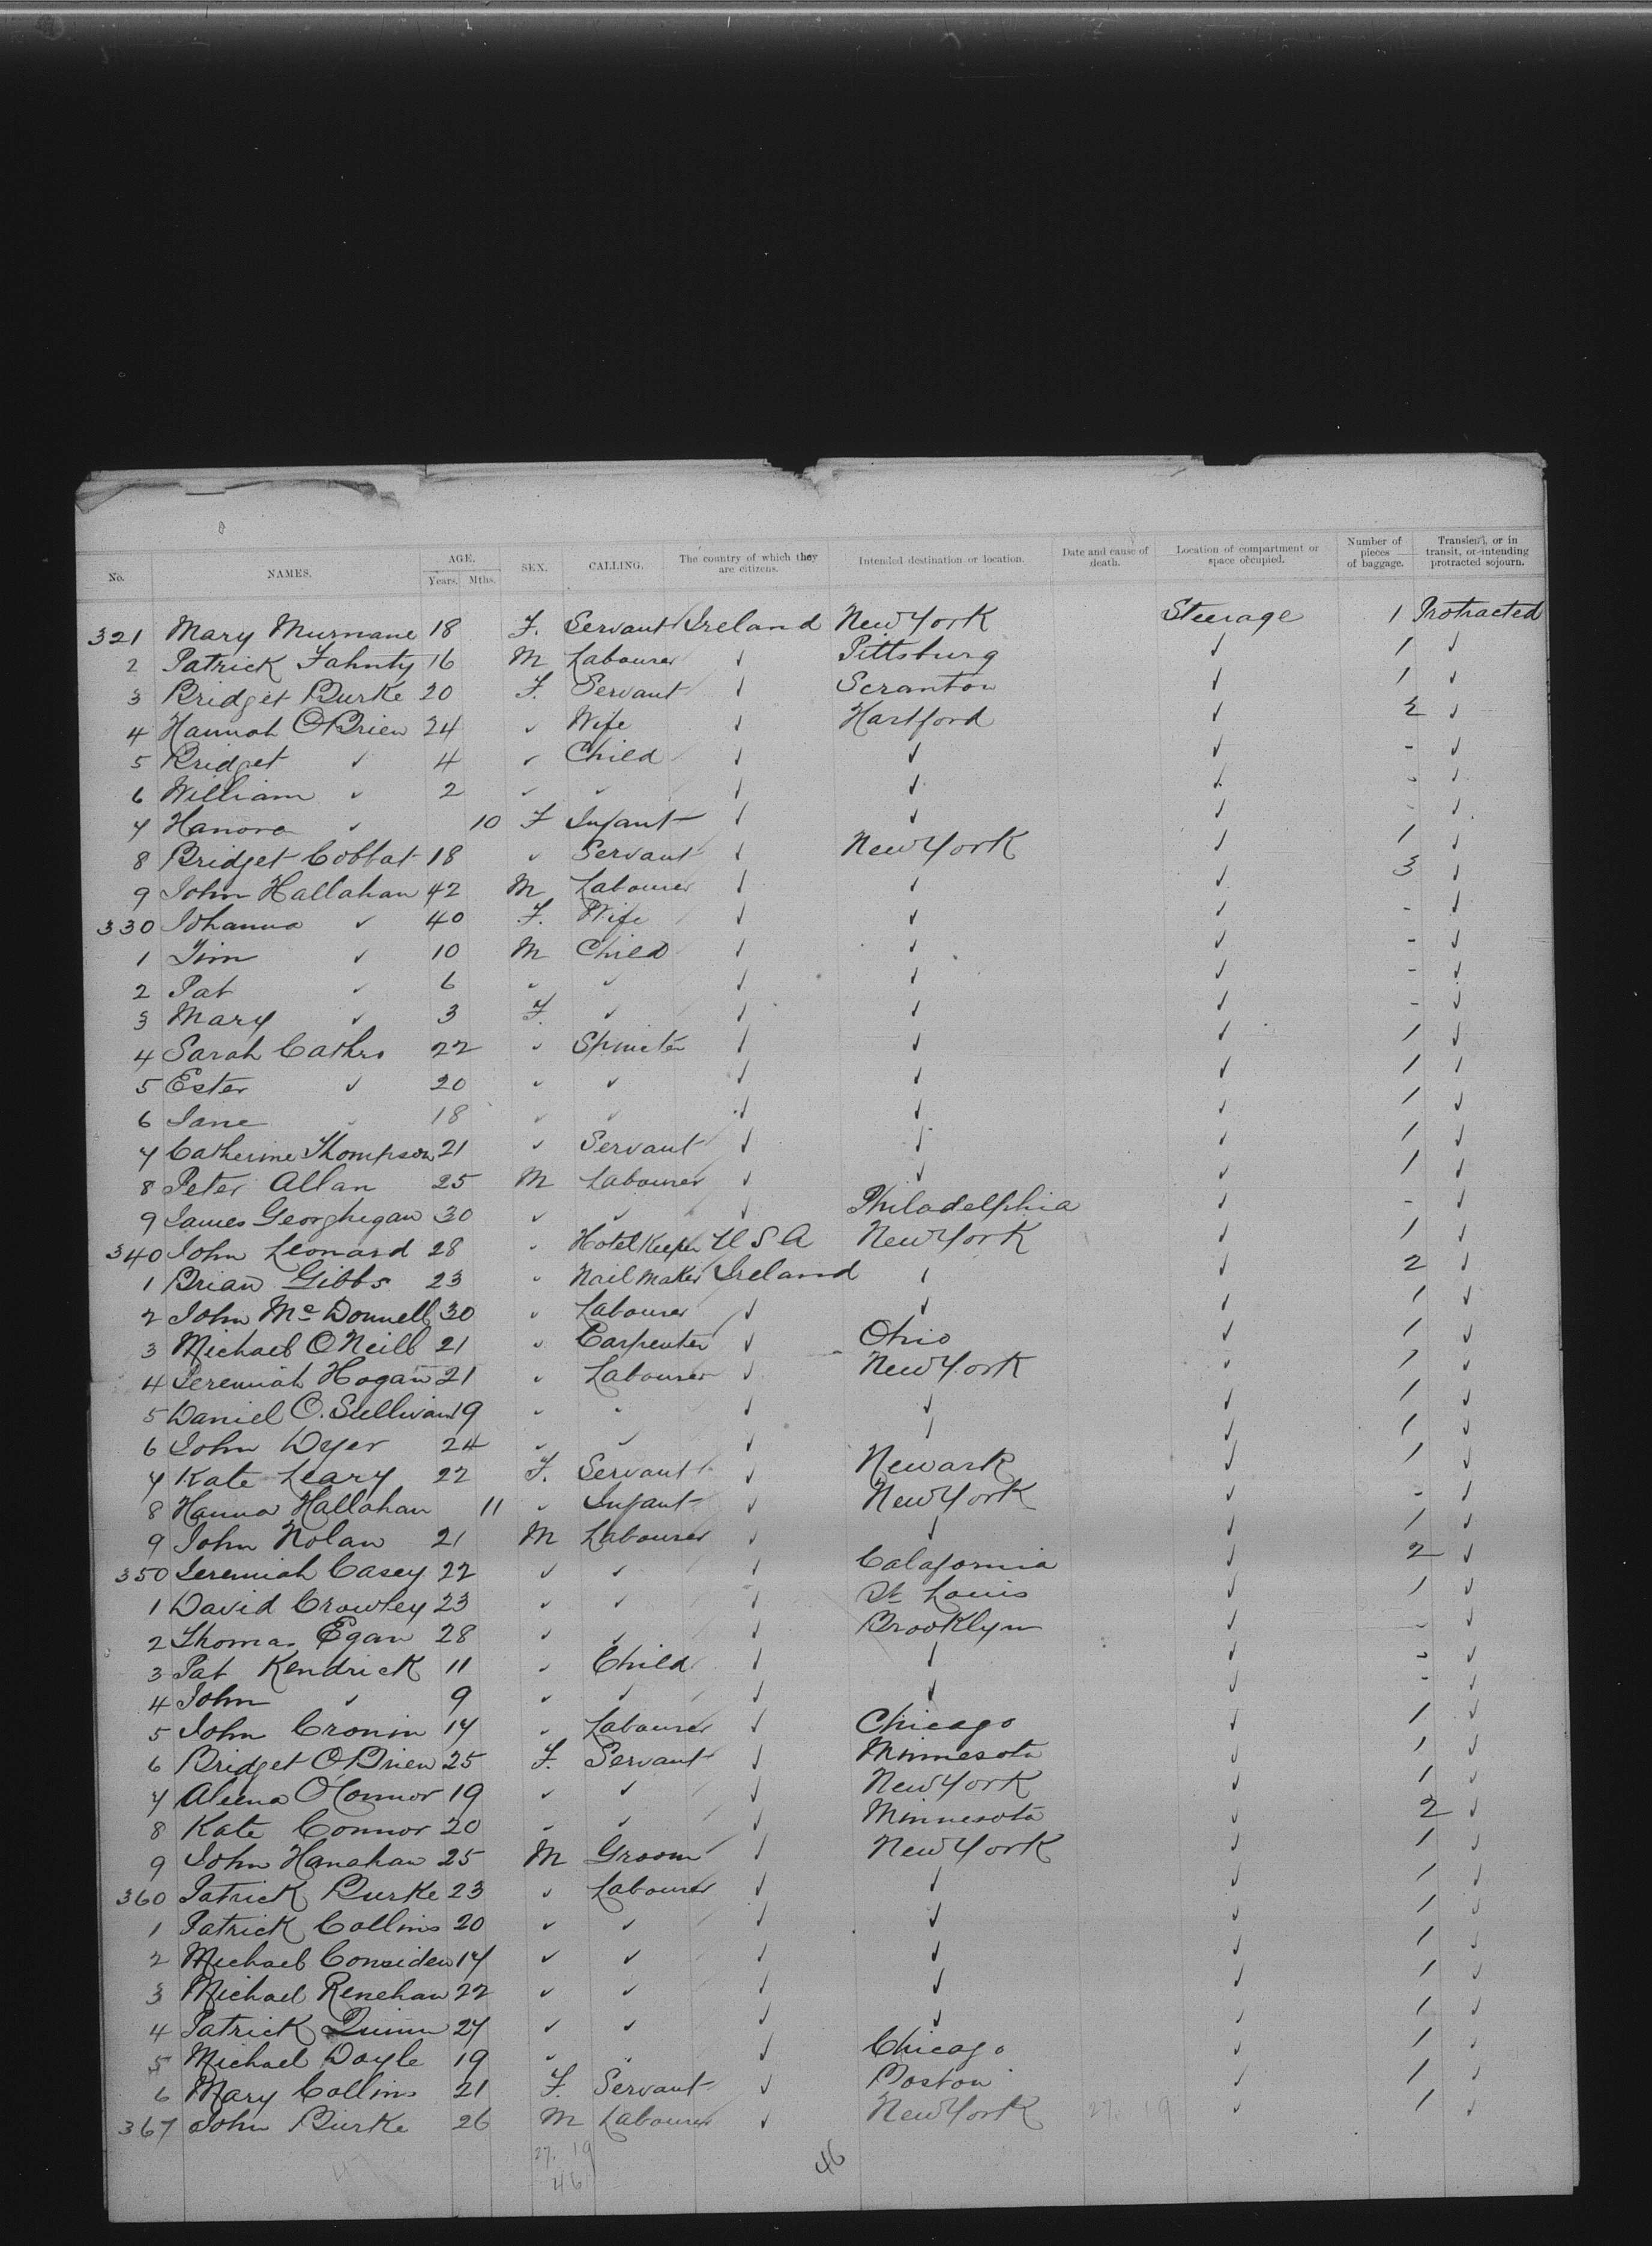 No. NAMES. AGE. Years. Mths. SEX. CALLING. The country of which they are citizens. Intended destination or location. Date and cause of death. Location of compartment or space occupied. Number of pieces of baggage. Transient, or in transit, or intending protracted sojourn.
321 Mary Murnane 18 F. Servant Ireland New York Steerage 1 Protracted
2 Patrick Fahnty 16 M Labourer ✓ Pittsburg ✓ 1 ✓
3 Bridget Burke 20 F. Servant ✓ Scranton ✓ 1 ✓
4 Hannah O'Brien 24 ✓ Wife ✓ Hartford ✓ 2 ✓
5 Bridget ✓ 4 ✓ Child ✓ ✓ ✓ - ✓
6 William ✓ 2 ✓ ✓ ✓ ✓ ✓ - ✓
7 Hanora ✓ 10 F Infant ✓ ✓ ✓ - ✓
8 Bridget 18 ✓ Servant ✓ New York ✓ 1 ✓
9 John Hallahan 42 M Labourer ✓ ✓ ✓ 3 ✓
330 Johanna ✓ 40 F. Wife ✓ ✓ ✓ - ✓
1 Tim ✓ 10 M Child ✓ ✓ ✓ - ✓
2 Pat ✓ 6 ✓ ✓ ✓ ✓ ✓ - ✓
3 Mary ✓ 3 F. ✓ ✓ ✓ ✓ - ✓
4 Sarah 22 ✓ ✓ ✓ ✓ 1 ✓
5 Ester ✓ 20 ✓ ✓ ✓ ✓ ✓ 1 ✓
6 Jane ✓ 18 ✓ ✓ ✓ ✓ ✓ 1 ✓
7 Catherine Thompson 21 ✓ Servant ✓ ✓ ✓ 1 ✓
8 Peter Allan 25 M Labourer ✓ ✓ ✓ 1 ✓
9 James Georghegan 30 ✓ ✓ ✓ Philadelphia ✓ - ✓
340 John Leonard 28 ✓ Hotel Keeper U S A New York ✓ 1 ✓
1 Brian Gibbs 23 ✓ Nail maker Ireland ✓ ✓ 2 ✓
2 John McDonnell 30 ✓ Labourer ✓ ✓ ✓ 1 ✓
3 Michael O'Neill 21 ✓ Carpenter ✓ Ohio ✓ 1 ✓
4 Jeremiah Hogan 21 ✓ Labourer ✓ New York ✓ 1 ✓
5 Daniel O. Sullivan 19 ✓ ✓ ✓ ✓ ✓ 1 ✓
6 John Dyer 24 ✓ ✓ ✓ ✓ ✓ 1 ✓
7 Kate Leary 22 F. Servant ✓ Newark ✓ 1 ✓
8 Hanna Hallahan 11 ✓ Infant ✓ New York ✓ - ✓
9 John Nolan 21 M Labourer ✓ ✓ ✓ 1 ✓
350 Jeremiah Casey 22 ✓ ✓ ✓ Calafornia ✓ 2 ✓
1 David Crowley 23 ✓ ✓ ✓ St Louis ✓ 1 ✓
2 Thomas Egan 28 ✓ ✓ ✓ Brooklyn ✓ - ✓
3 Pat Kendrick 11 ✓ Child ✓ ✓ ✓ - ✓
4 John ✓ 9 ✓ ✓ ✓ ✓ ✓ - ✓
5 John Cronin 17 ✓ Labourer ✓ Chicago ✓ 1 ✓
6 Bridget O'Brien 25 F. Servant ✓ Minnesota ✓ 1 ✓
7 O'Connor 19 ✓ ✓ ✓ New York ✓ 1 ✓
8 Kate Connor 20 ✓ ✓ ✓ Minnesota ✓ 2 ✓
9 John Hanahan 25 M Groom ✓ New York ✓ 1 ✓
360 Patrick Burke 23 ✓ Labourer ✓ ✓ ✓ 1 ✓
1 Patrick Collins 20 ✓ ✓ ✓ ✓ ✓ 1 ✓
2 Michael Considen 17 ✓ ✓ ✓ ✓ ✓ 1 ✓
3 Michael Renehan 22 ✓ ✓ ✓ ✓ ✓ 1 ✓
4 Patrick Quinn 27 ✓ ✓ ✓ ✓ ✓ 1 ✓
5 Michael Doyle 19 ✓ ✓ ✓ Chicago ✓ 1 ✓
6 Mary Collins 21 F. Servant ✓ Boston ✓ 1 ✓
367 John Burke 26 M Labourer ✓ New York 27. 19 ✓ 1 ✓
27. 19
46
46